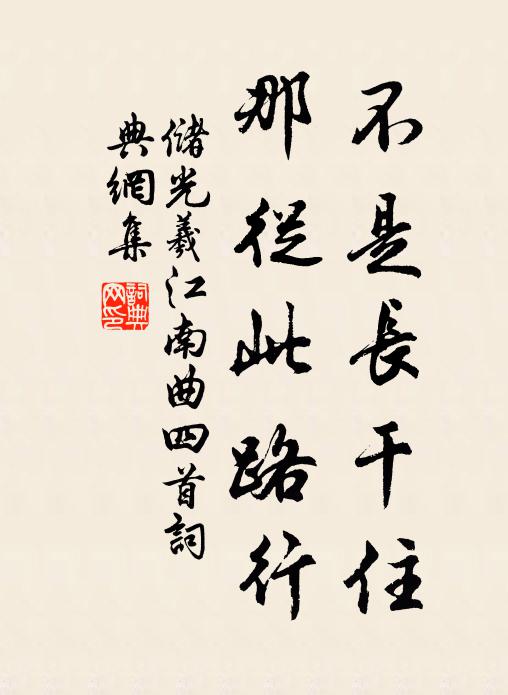 不是長干住
那從此路行
儲光羲江南曲四首詞
典網集
詞典
网印